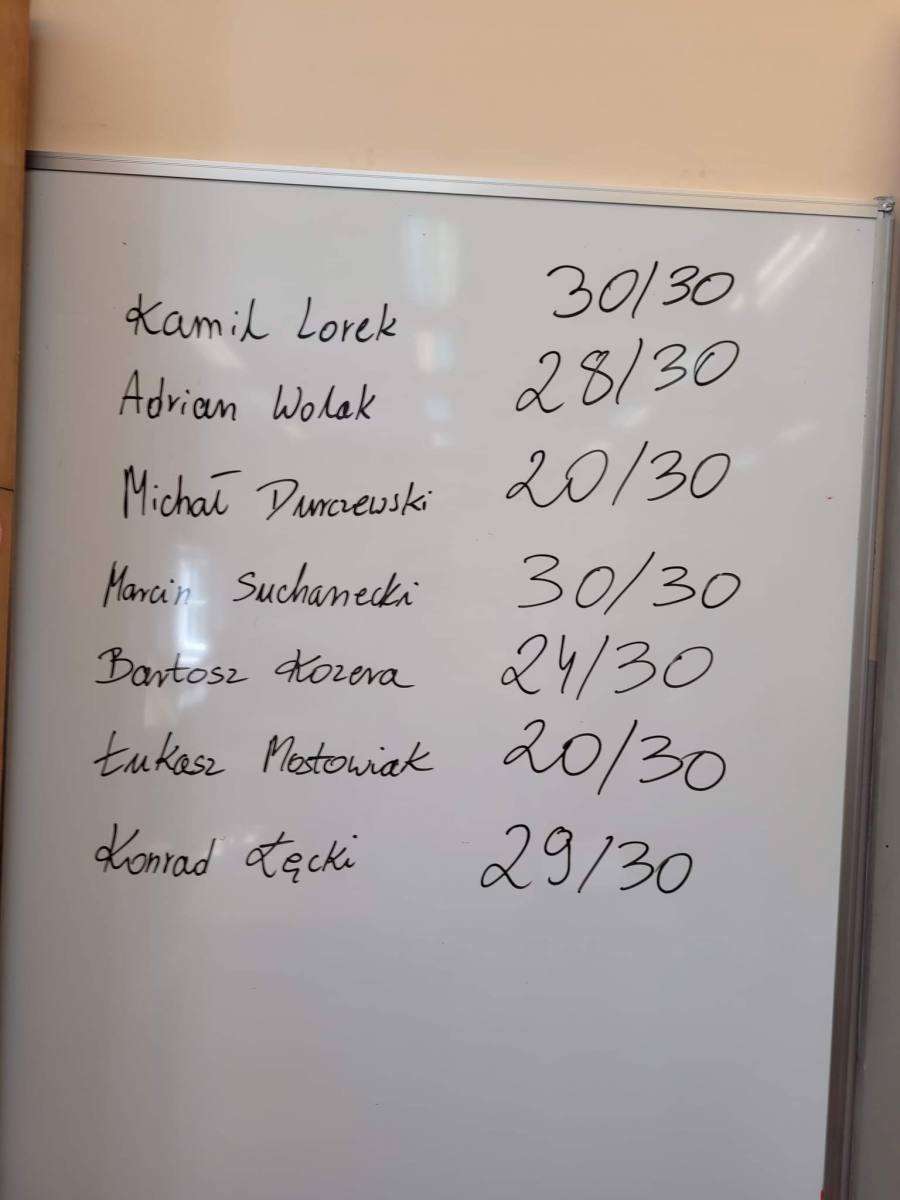 Kamil Lorek 30/30
Adrian Wolak 28/30
Michał Durczewski 20/30
Marcin Suchanecki 30/30
Bartosz Kozera 24/30
Łukasz Mostowiak 20/30
Konrad Łęcki 29/30